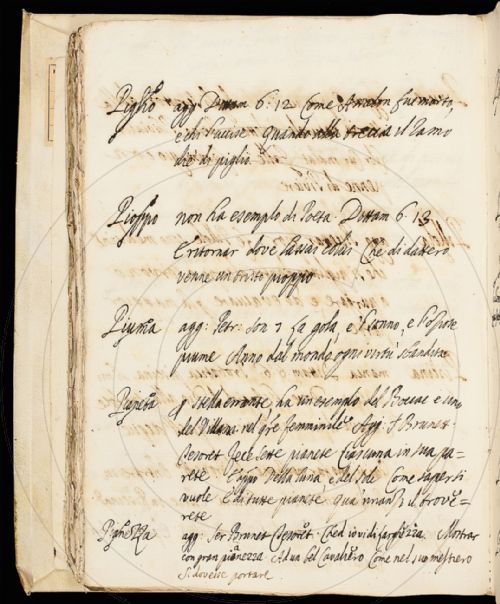 Piglio agg Dittam 6: 12 Come Ansalon fu morto,
e chi l'uccise quando alla treccia il ramo
die di piglio
Pioppo non ha esempio di Poeta Dittam 6 13
E ritornar dove lassai colui Che di davero
venne un tristo pioppo
Piuma agg: Petr: Son 7 La gola, e'l sonno, e l'oziose
piume Anno del mondo ogni virtù sbandita
Pianeta stella errante ha un esempio del Bocac e uno
del Villani nel gre femminile Agg: S Brunet
Tesoret Fece sette pianete ciascuna in sua pa=
rete E appo della luna, e del sole Come saper si
vuole E di tutte pianete qua nnanzi trove=
rete
Pianezza agg: Ser Brunet Tesoret Mostrar
con gran pianezza Ad un bel Cavaliero Come nel suo mestiero
Si dovesse portare